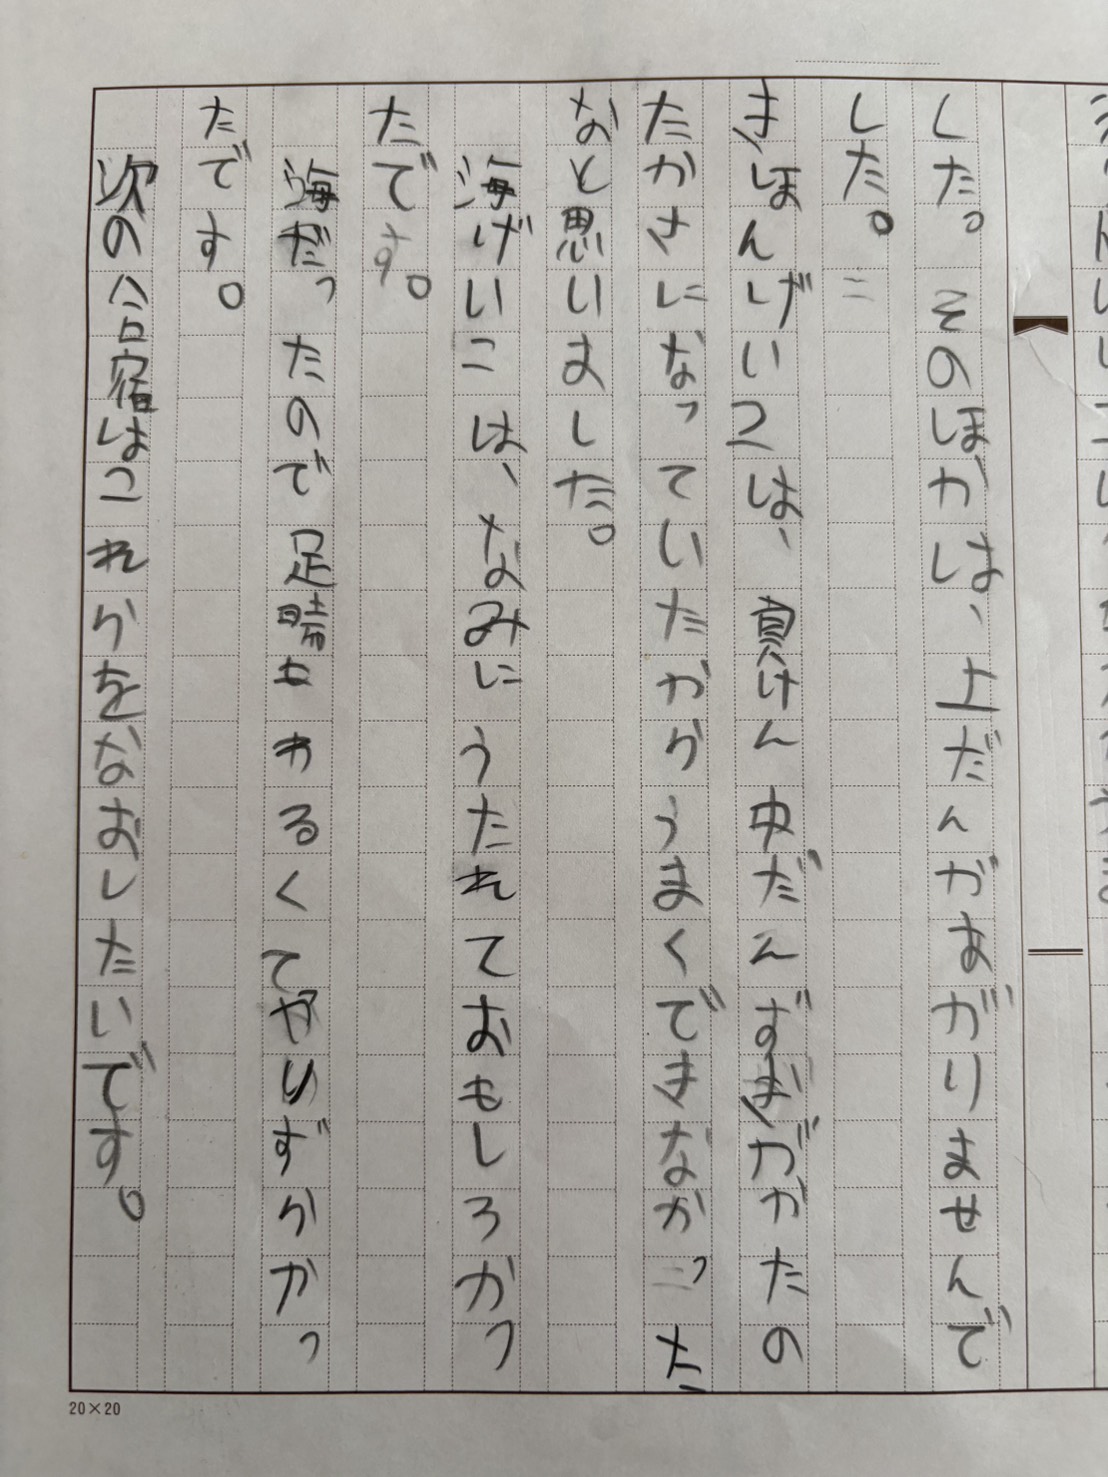 した。そのほかは、上だんがあがりませんで
した。
きほんげいこは、負けん中だんずきがかたの
たかさになっていたからうまくできなかった
なと思いました。
海げいこは、なみにうたれておもしろかっ
たです。
海だったので足場もわるくてやりずらかっ
たです。
次の合宿はこれからをなおしたいです。
20×20